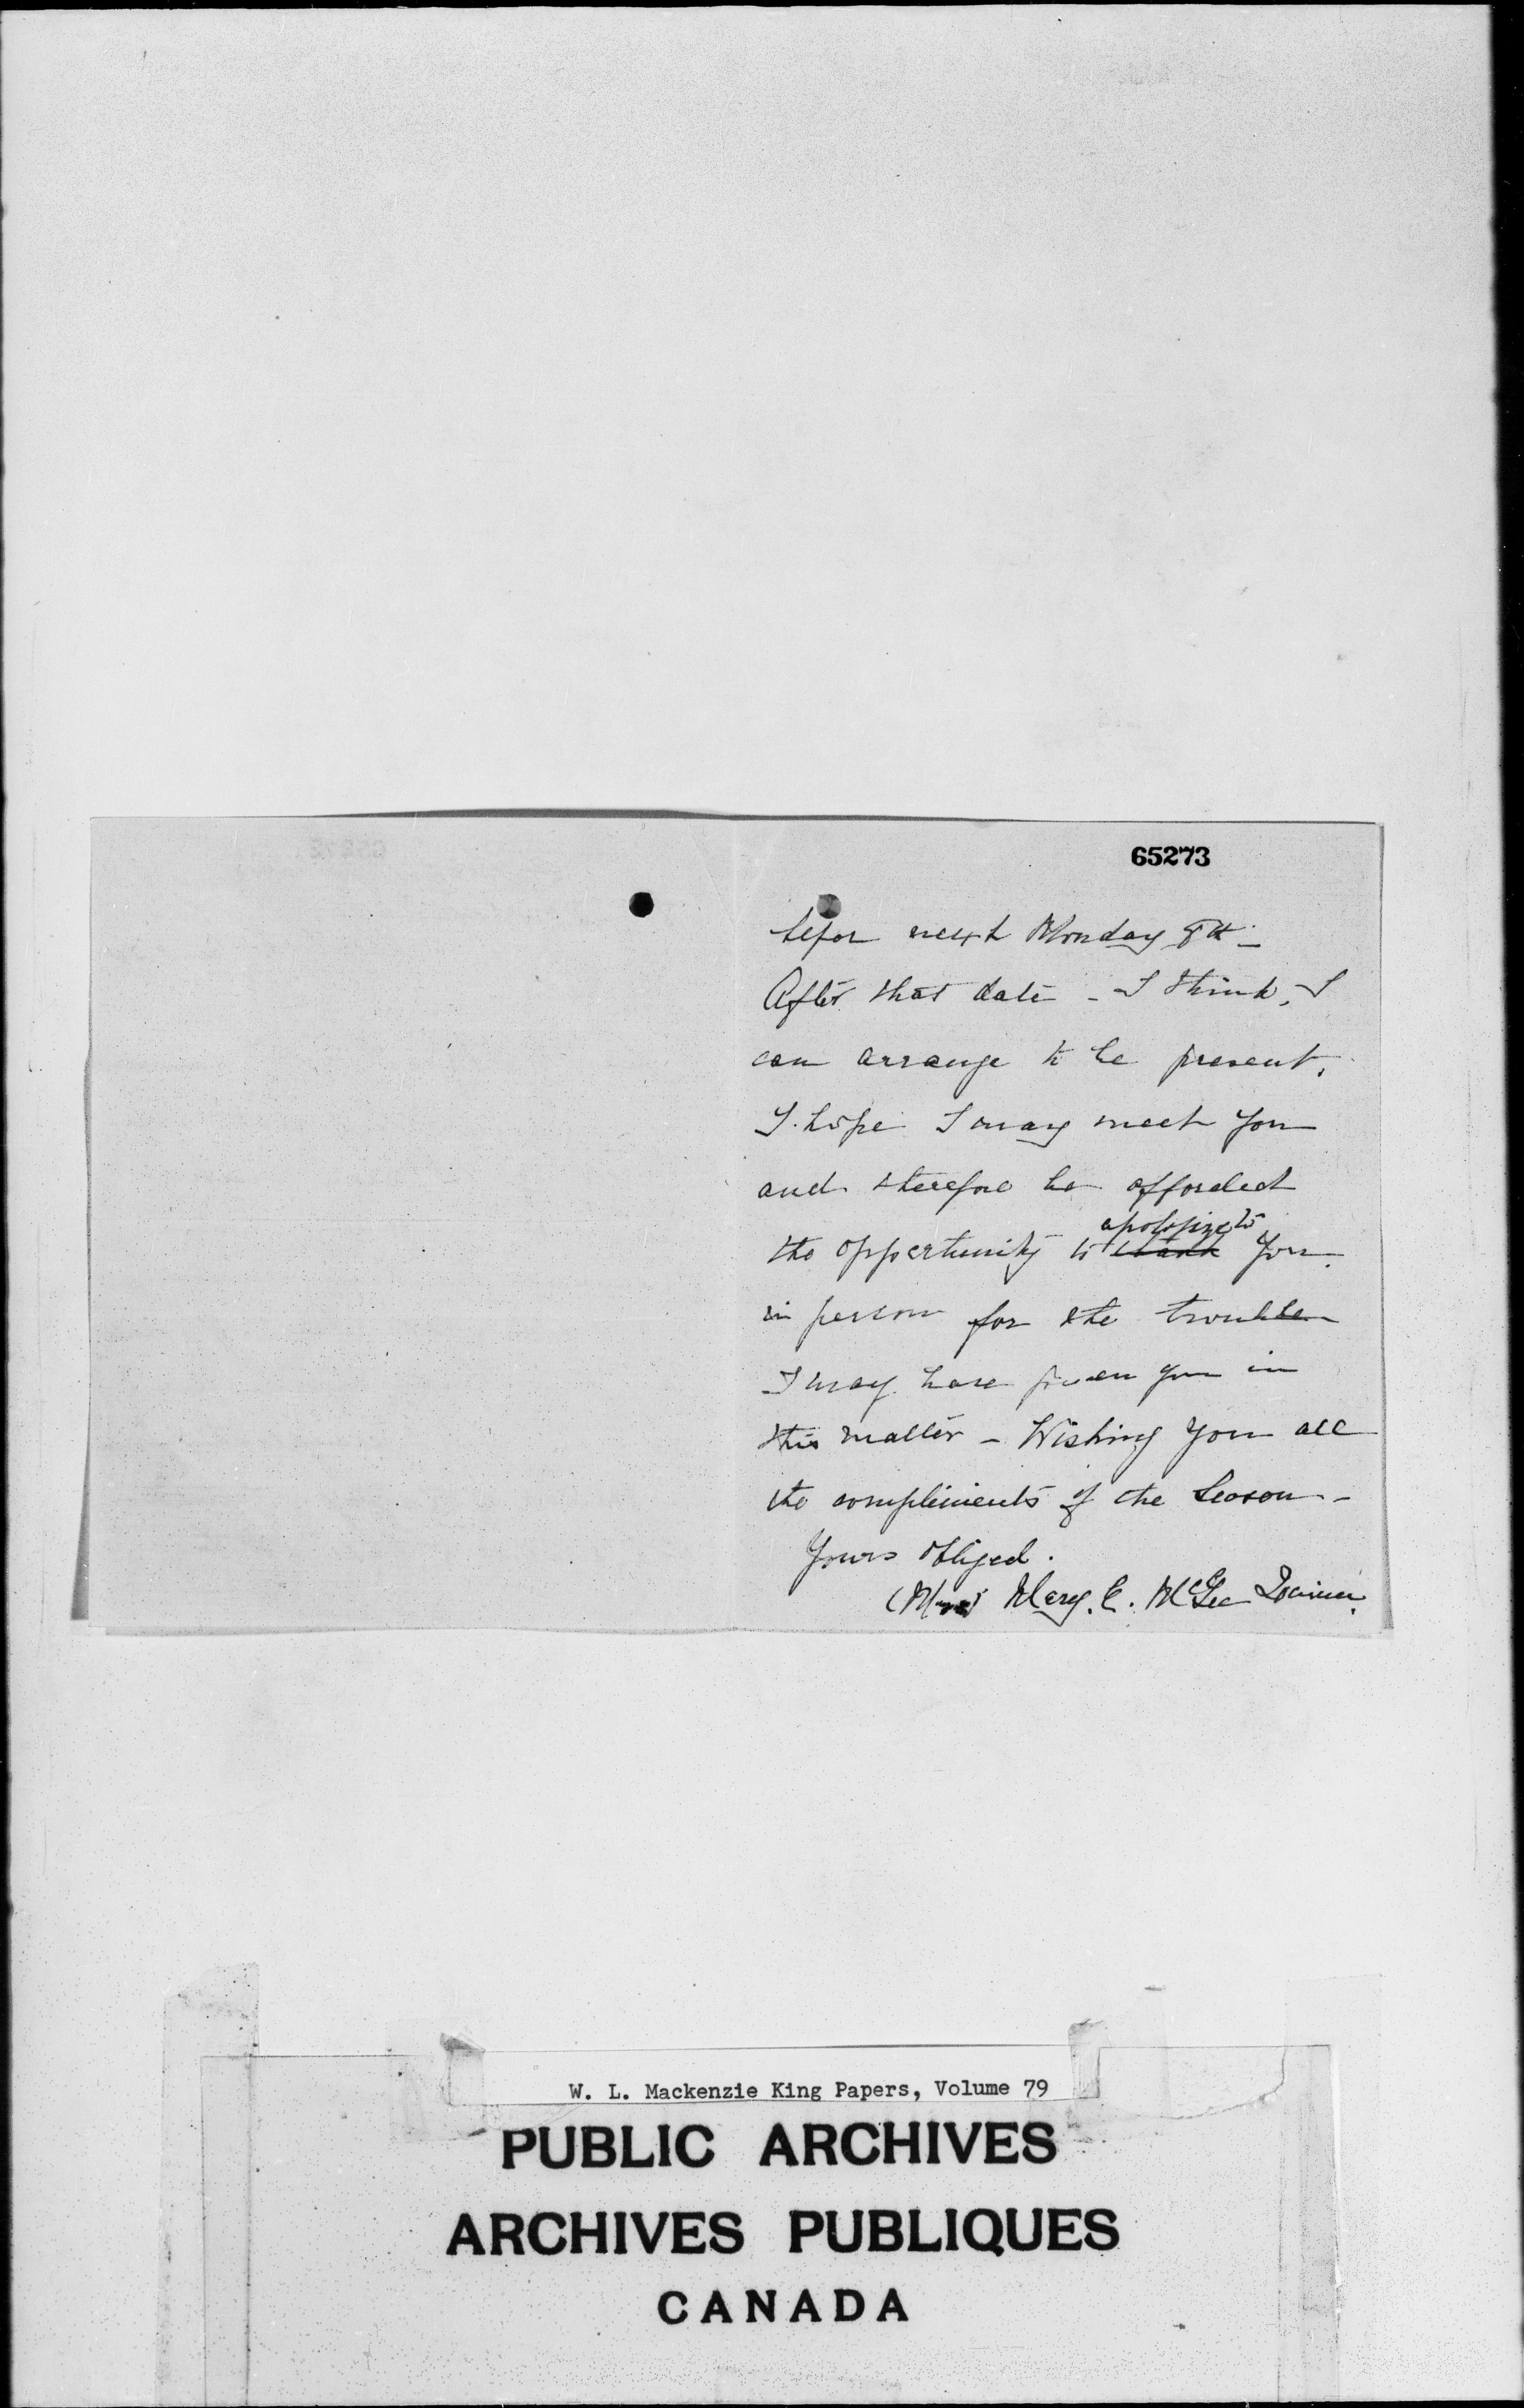 65273
befor next Monday 8th -
After that date - I think, I
can arrange to be present.
I hope I may meet you
and therefore be afforded
apologize to
the oppertunity to thank you
in person for the trouble
I may have given you in
this matter - Wishing you all
the compliments of the Season -
Yours obliged.
(Mrs) Mary. E. McGee Quinn.
W. L. Mackenzie King Papers, Volume 79
PUBLIC ARCHIVES
ARCHIVES PUBLIQUES
CANADA